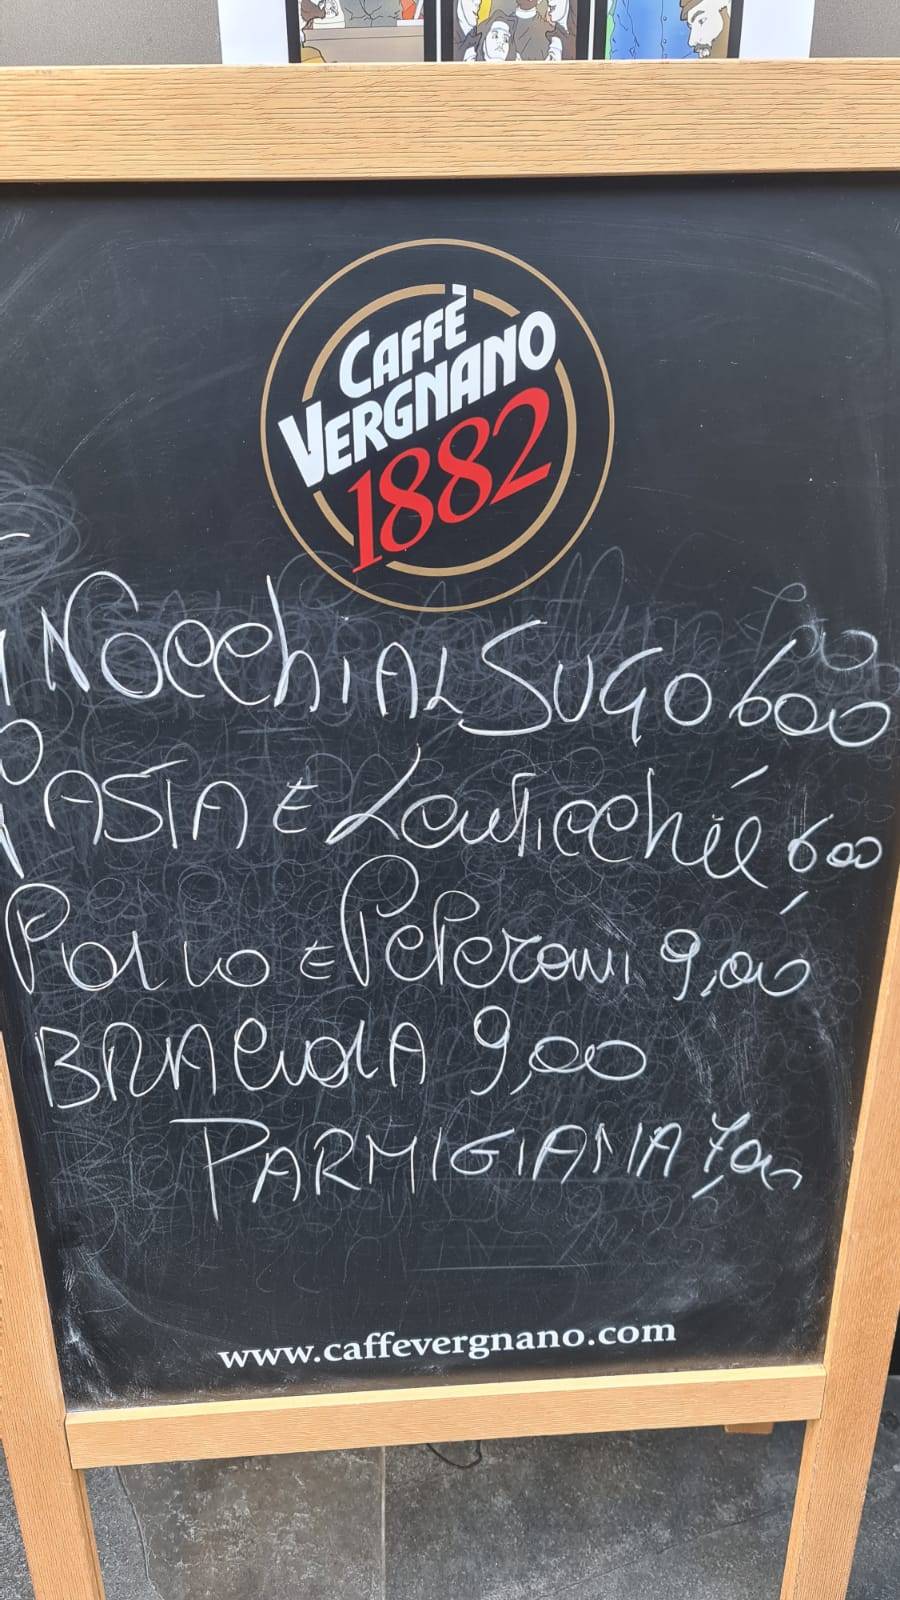 CAFFÈ
VERGNANO
1882
GNOCCHI AL SUGO 600
PASTA E Lenticchie 600
POLLO E PEPERONI 9,00
BRACIOLA 9,00
PARMIGIANA 7,00
www.caffevergnano.com